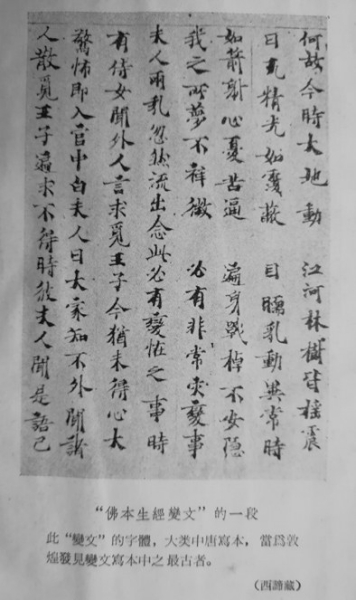 何故今時大地動 江河林樹皆搖震
日无精光如覆蔽 目瞤乳動異常時
如箭射心憂苦逼 遍身戰掉不安隱
我之所夢不祥徵 必有非常灾變事
夫人兩乳忽然流出念此必有變恠之事時
有侍女聞外人言求覓王子今猶未得心大
驚怖即入宮中白夫人曰大家知不外聞諸
人散覓王子遍求不得時彼夫人聞是語已
“佛本生經變文”的一段
此“變文”的字體，大类中唐寫本，當爲敦
煌發見變文寫本中之最古者。
（西諦藏）